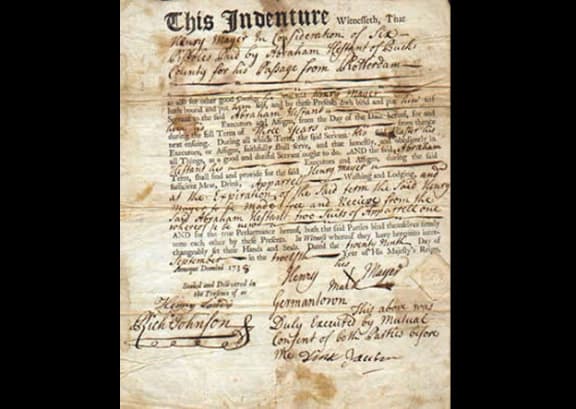 This Indenture Witnesseth, That
Henry Mayer In Consideration of Six
Pistoles Paid by Abraham Hestant of Bucks
County for his Passage from Rotterdam
as also for other good Causes he the said Henry Mayer
hath bound and put him self, and by these Presents doth bind and put him self
to the said Abraham Hestant
Executors and Assigns, from the Day of the Date hereof, for and
during the full Term of Three Years from thence
next ensuing. During all which Term, the said Servant his
Executors, or Assigns, faithfully shall serve, and that honestly, and obediently in
all Things, as a good and dutiful Servant ought to do. AND the said Abraham
Hestant his Executors and Assigns, during the said
Term, shall find and provide for the said Henry Mayer
sufficient Meat, Drink, Apparrell Washing and Lodging, and
at the Expiration of the Said term the Said Henry
Mayer to be made free and Receive from the
Said Abraham Hestant two Suits of Apparrell one
whereof to be new
AND for the true Performance hereof, both the said Parties bind themselves firmly
unto each other by these Presents. In Witness whereof they have hereunto inter-
changeably set their Hands and Seals. Dated the twenty Ninth Day of
September in the twelfth Year of His Majesty's Reign,
Annoque Domini 1738
his
Henry X Mayer
mark
Sealed and Delivered in
the Presence of us
Rich Johnson
Germantown This above was
Duly Executed by Mutual
Consent of both Parties before
me